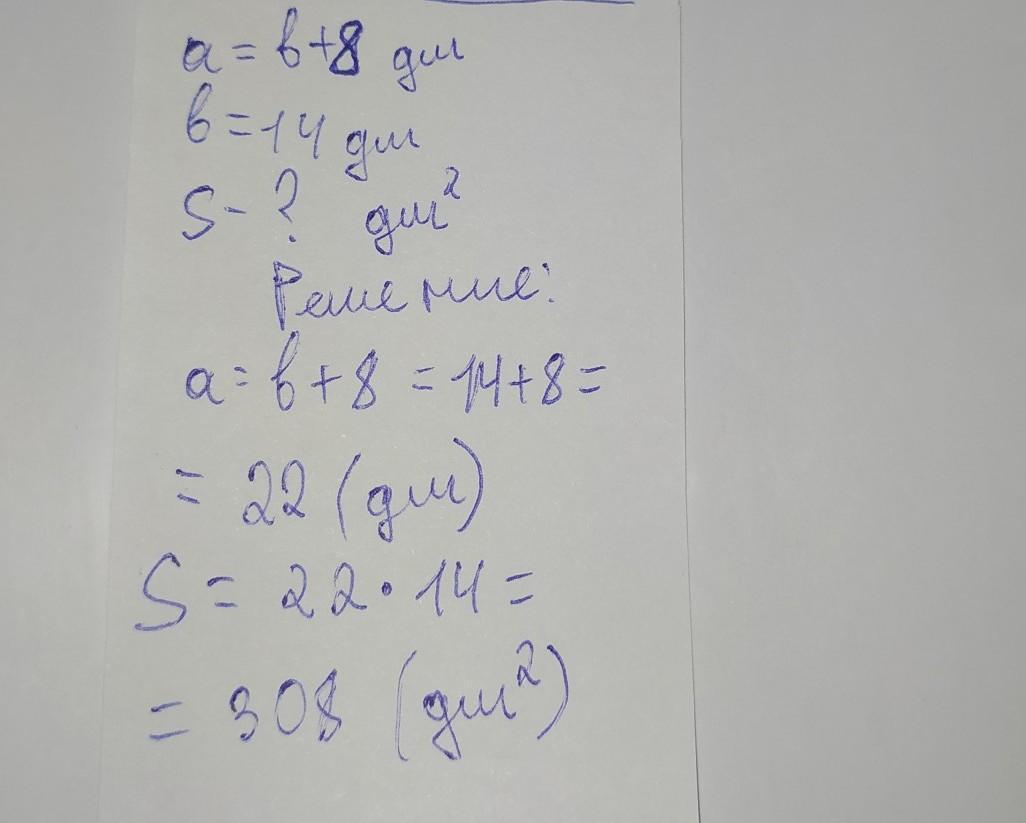 a = b+8 дм
b = 14 дм
S - ? дм²
Решение:
a = b + 8 = 14 + 8 =
= 22 (дм)
S = 22 · 14 =
= 308 (дм²)